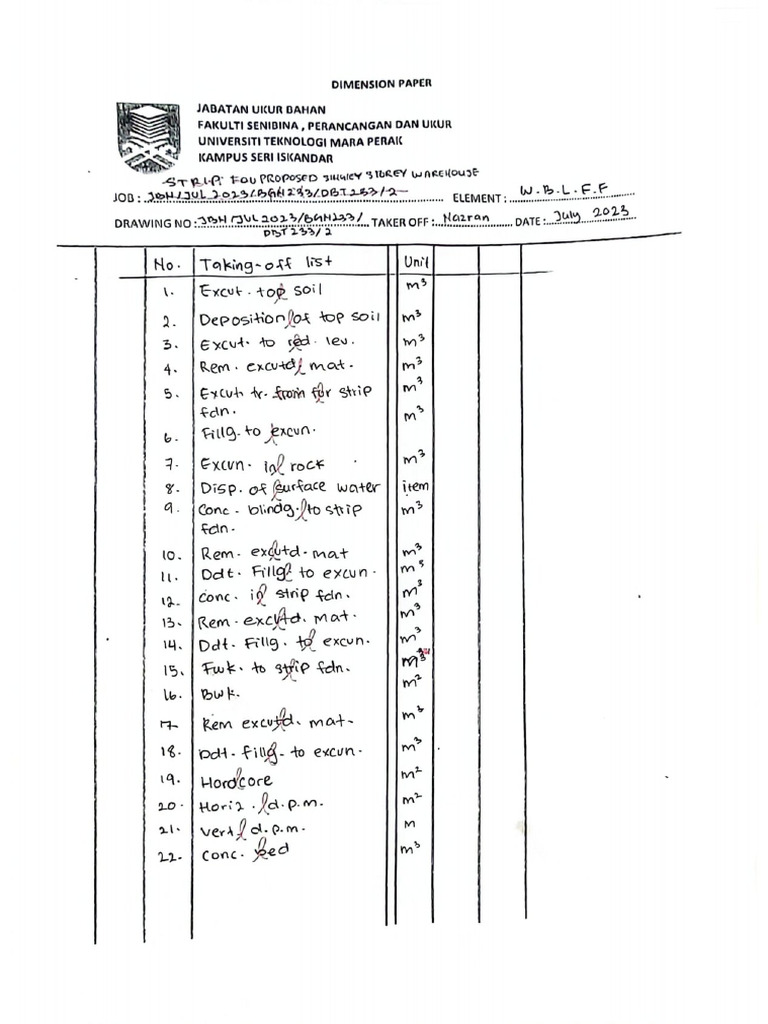 DIMENSION PAPER
JABATAN UKUR BAHAN
FAKULTI SENIBINA , PERANCANGAN DAN UKUR
UNIVERSITI TEKNOLOGI MARA PERAK
KAMPUS SERI ISKANDAR
STRIP FOU PROPOSED STOREY WAREHOUSE
JOB : JBH/JUL 2023/BGN233/DBT233/2 ELEMENT : W.B.L.F.F
DRAWING NO : JBH/JUL2023/BGN233/ TAKER OFF : Nazran DATE : July 2023
DBT233/2
No. Taking-off list Unit
1. Excvt. top soil m³
2. Deposition of top soil m³
3. Excvt. to red. lev. m³
4. Rem. excvtd. mat. m³
5. Excvt. tr. from for strip m³
fdn.
6. Fillg. to excvn. m³
7. Excvn. in rock m³
8. Disp. of surface water item
9. Conc. blindg. to strip m³
fdn.
10. Rem. excvtd. mat m³
11. Ddt. Fillg. to excvn. m³
12. conc. in strip fdn. m³
13. Rem. excvtd. mat. m³
14. Ddt. Fillg. to excvn. m³
15. Fwk. to strip fdn.
16. Bwk. m²
17 Rem excvtd. mat. m³
18. Ddt. fillg. to excvn. m³
19. Hordcore m²
20. Horiz. d.p.m. m²
21. vert d.p.m. M
22. conc. bed m³